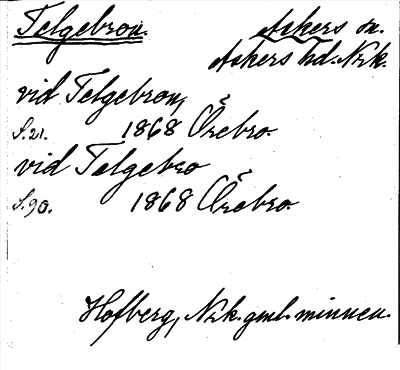 Telgebron. Askers sn.
Askers hd. Nrk.
vid Telgebron,
S. 21. 1868 Örebro.
vid Telgebro
S. 90. 1868 Örebro.
Hofberg, Nrk. gml. minnen.